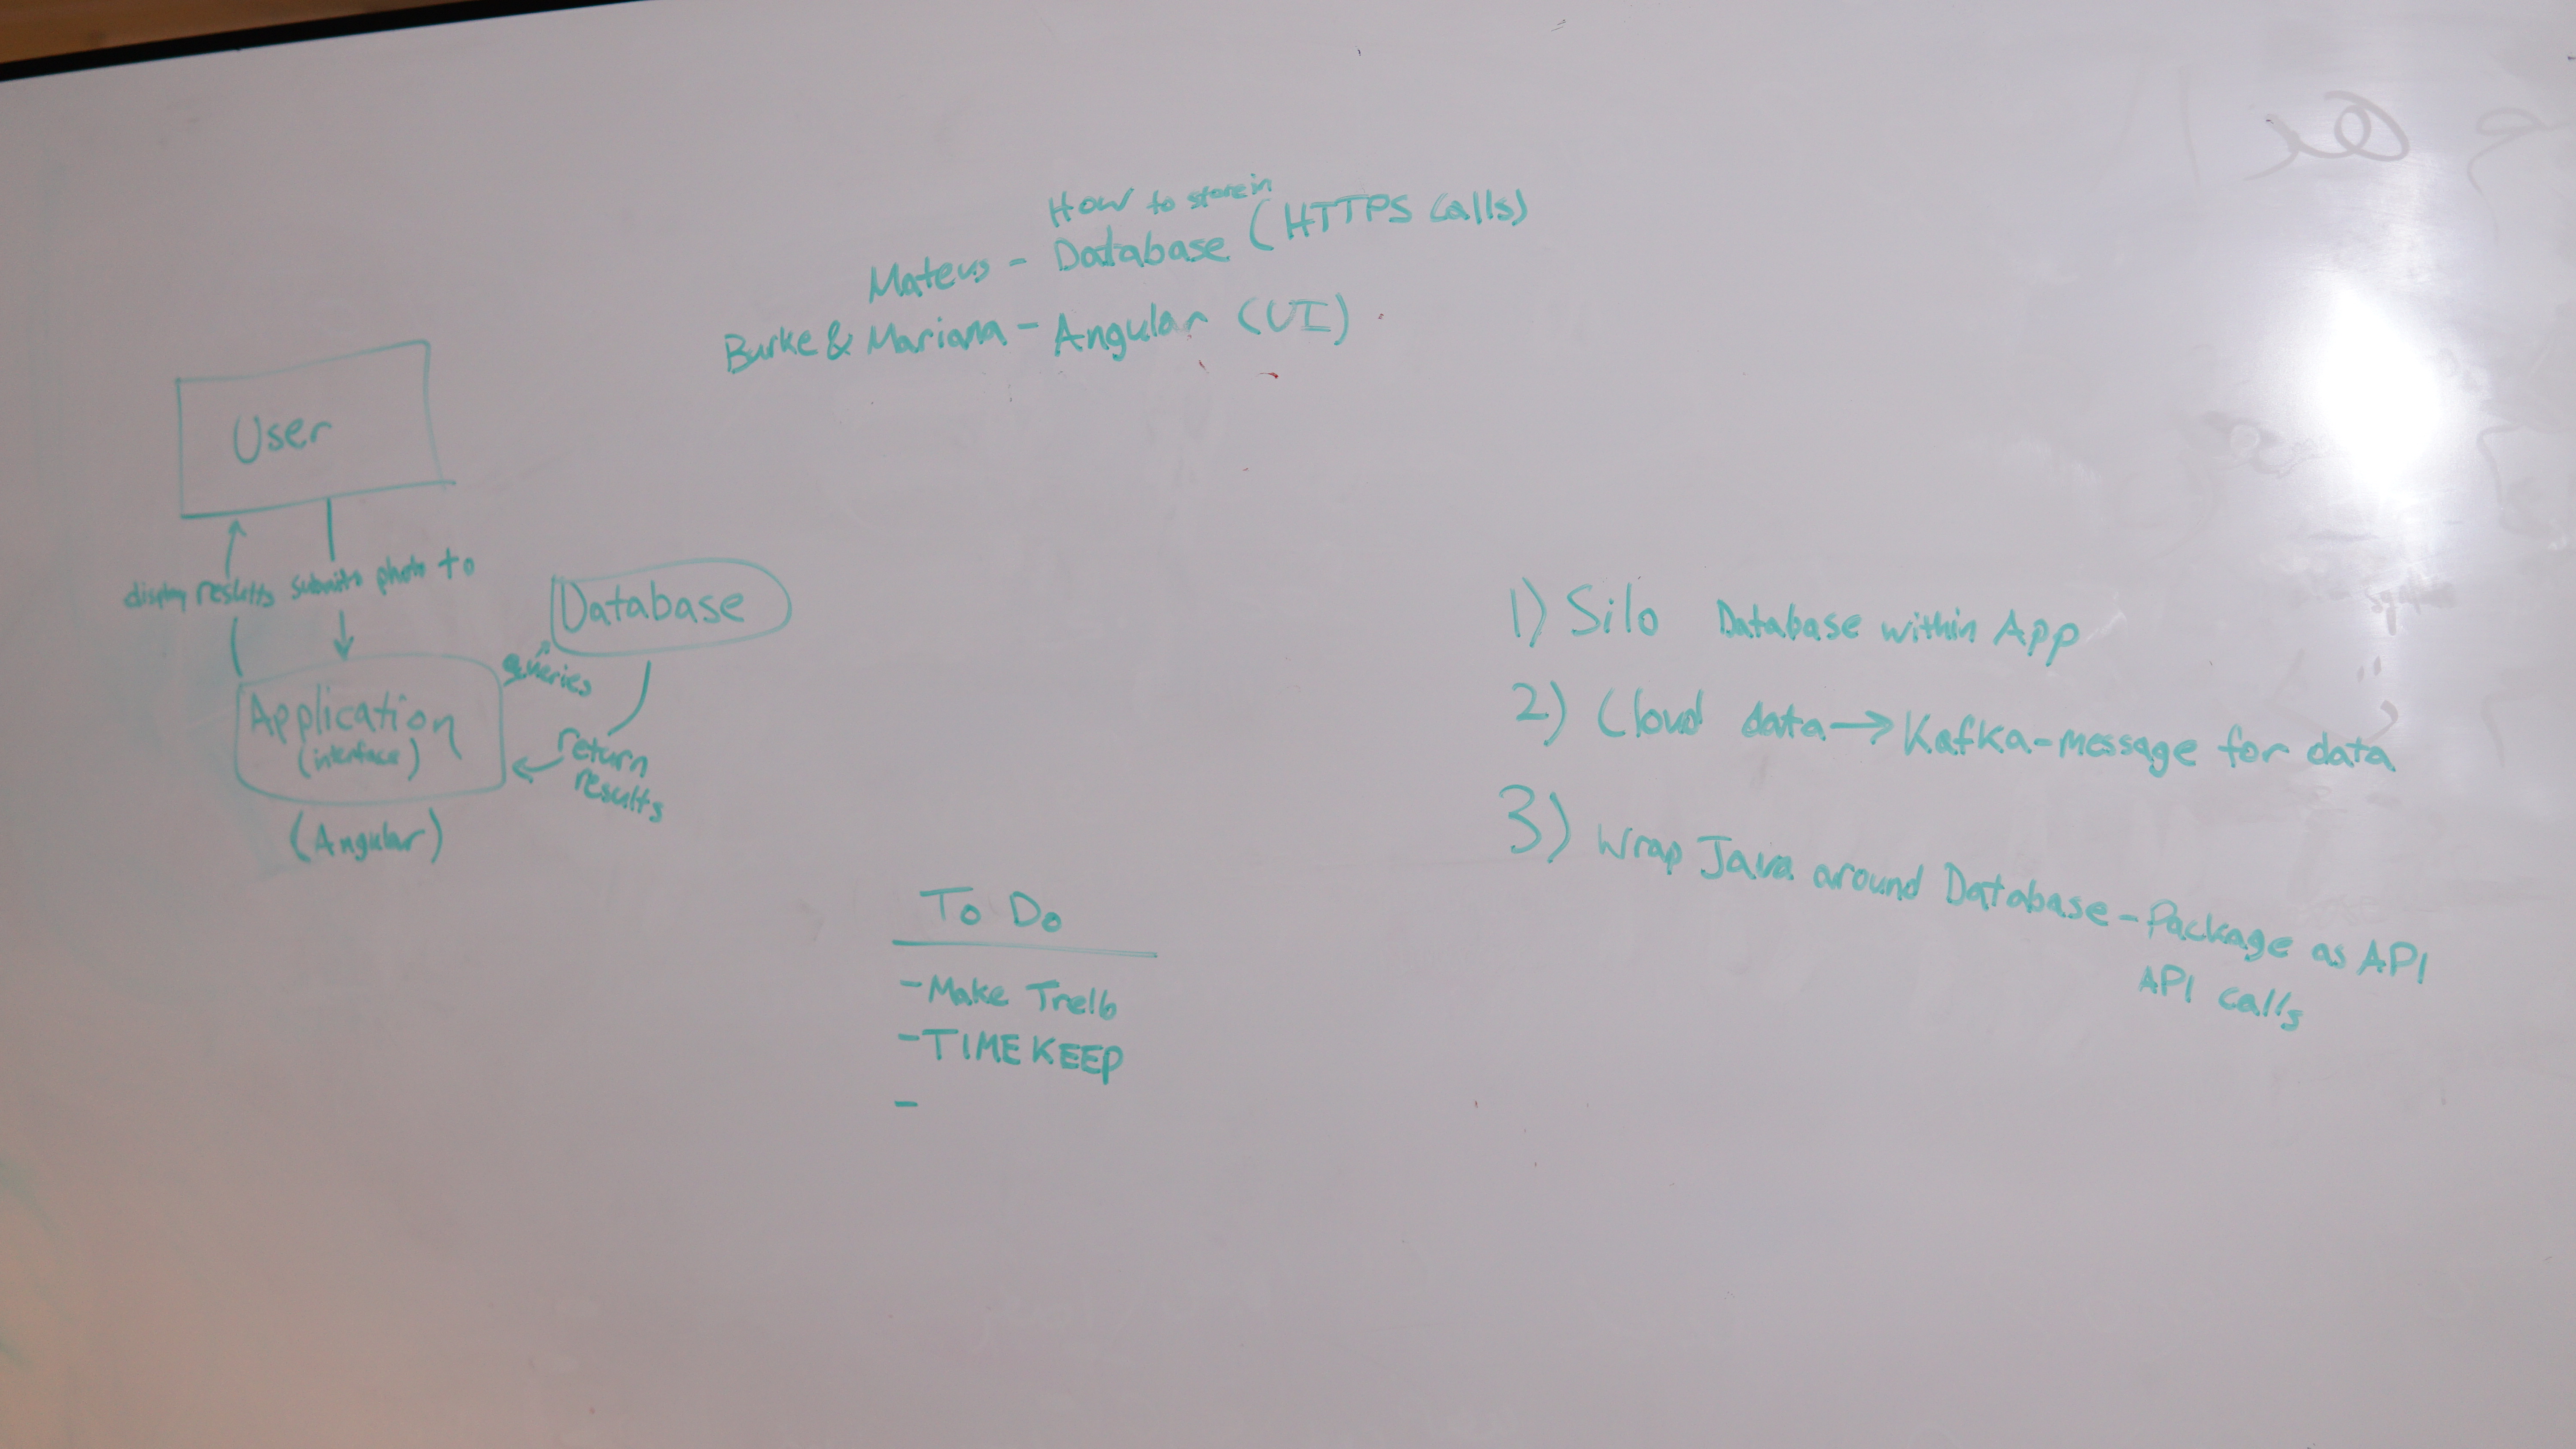 How to store in
Mateus - Database (HTTPS Calls)
Burke & Mariana - Angular (UI)
User
display reslults
submits photo to
Database
queries
Application
(interface)
return
results
(Angular)
1) Silo Database within App
2) Cloud data → Kafka - message for data
3) Wrap Java around Database - Package as API
API calls
To Do
- Make Trello
- TIMEKEEP
-